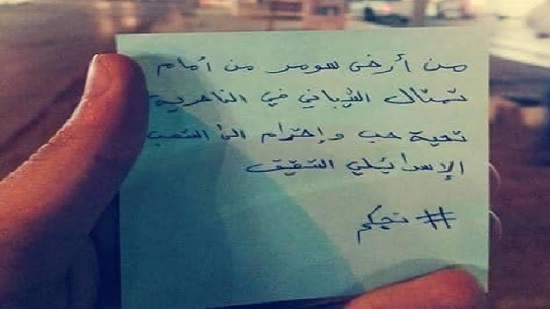 من أرض سومر من أمام
تمثال الشيباني في الناصرية
تحية حب وإحترام الى الشعب
الإسرائيلي الشقيق
# نحبكم